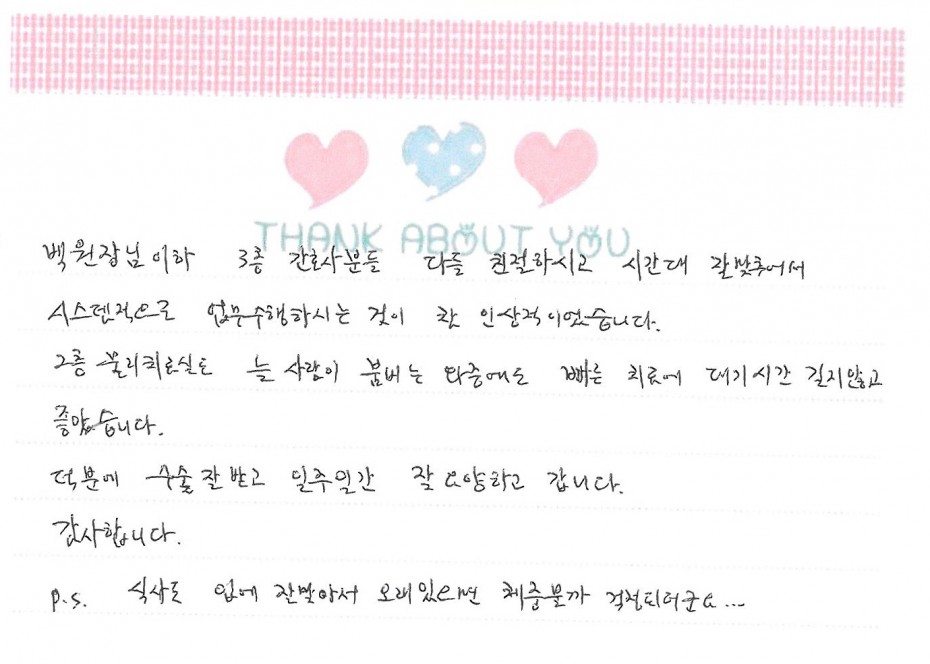 THANK ABOUT YOU
백원장님 이하 3층 간호사분들 다들 친절하시고 시간대 잘맞추어서
시스템적으로 업무수행하시는 것이 참 인상적이었습니다.
2층 물리치료실도 늘 사람이 붐비는 와중에도 빠른 치료에 대기시간 길지않고
좋았습니다.
덕분에 수술 잘 받고 일주일간 잘 요양하고 갑니다.
감사합니다.
p.s. 식사도 입에 잘맞아서 오래있으면 체중불까 걱정되더군요...